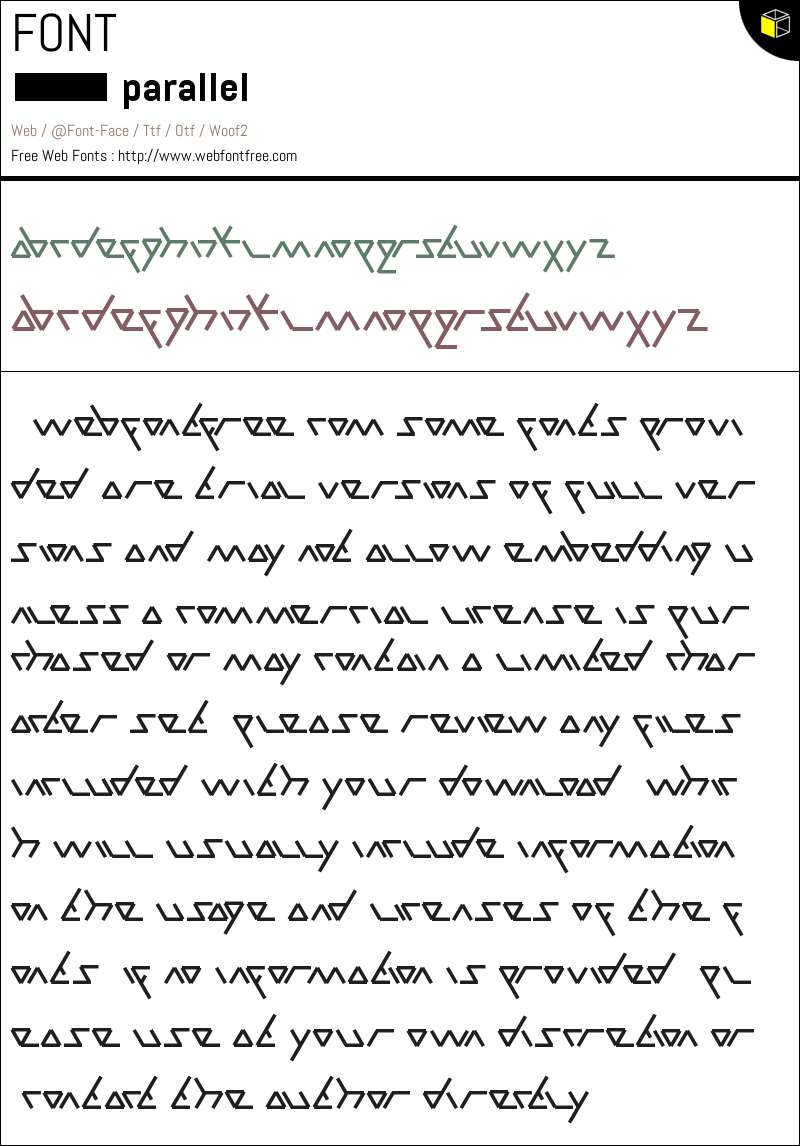 FONT
parallel
Web / @Font-Face / Ttf / Otf / Woof2
Free Web Fonts : http://www.webfontfree.com
abcdefghijklmnopqrstuvwxyz
abcdefghijklmnopqrstuvwxyz
webfontfree com some fonts provi
ded are trial versions of full ver
sions and may not allow embedding u
nless a commercial license is pur
chased or may contain a limited char
acter set please review any files
included with your download whic
h will usually include information
on the usage and licenses of the f
onts if no information is provided pl
ease use at your own discretion or
contact the author directly